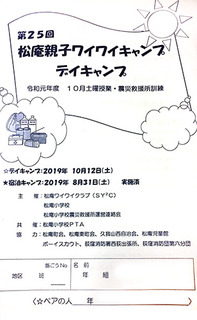 第25回
松庵親子ワイワイキャンプ
デイキャンプ
令和元年度 10月土曜授業・震災救援所訓練
☆デイキャンプ:2019年 10月12日(土)
★宿泊キャンプ:2019年 8月31日(土) 実施済
主 催：松庵ワイワイクラブ（SY²C）
松庵小学校
松庵小学校震災救援所運営連絡会
共 催：松庵小学校PTA
協 力：松庵町会、松庵東町会、久我山西自治会、松庵児童館
ボーイスカウト、荻窪消防署西荻出張所、荻窪消防団第八分団
No
名前
地区 班 年 組
（☆ペアの人 年 ）